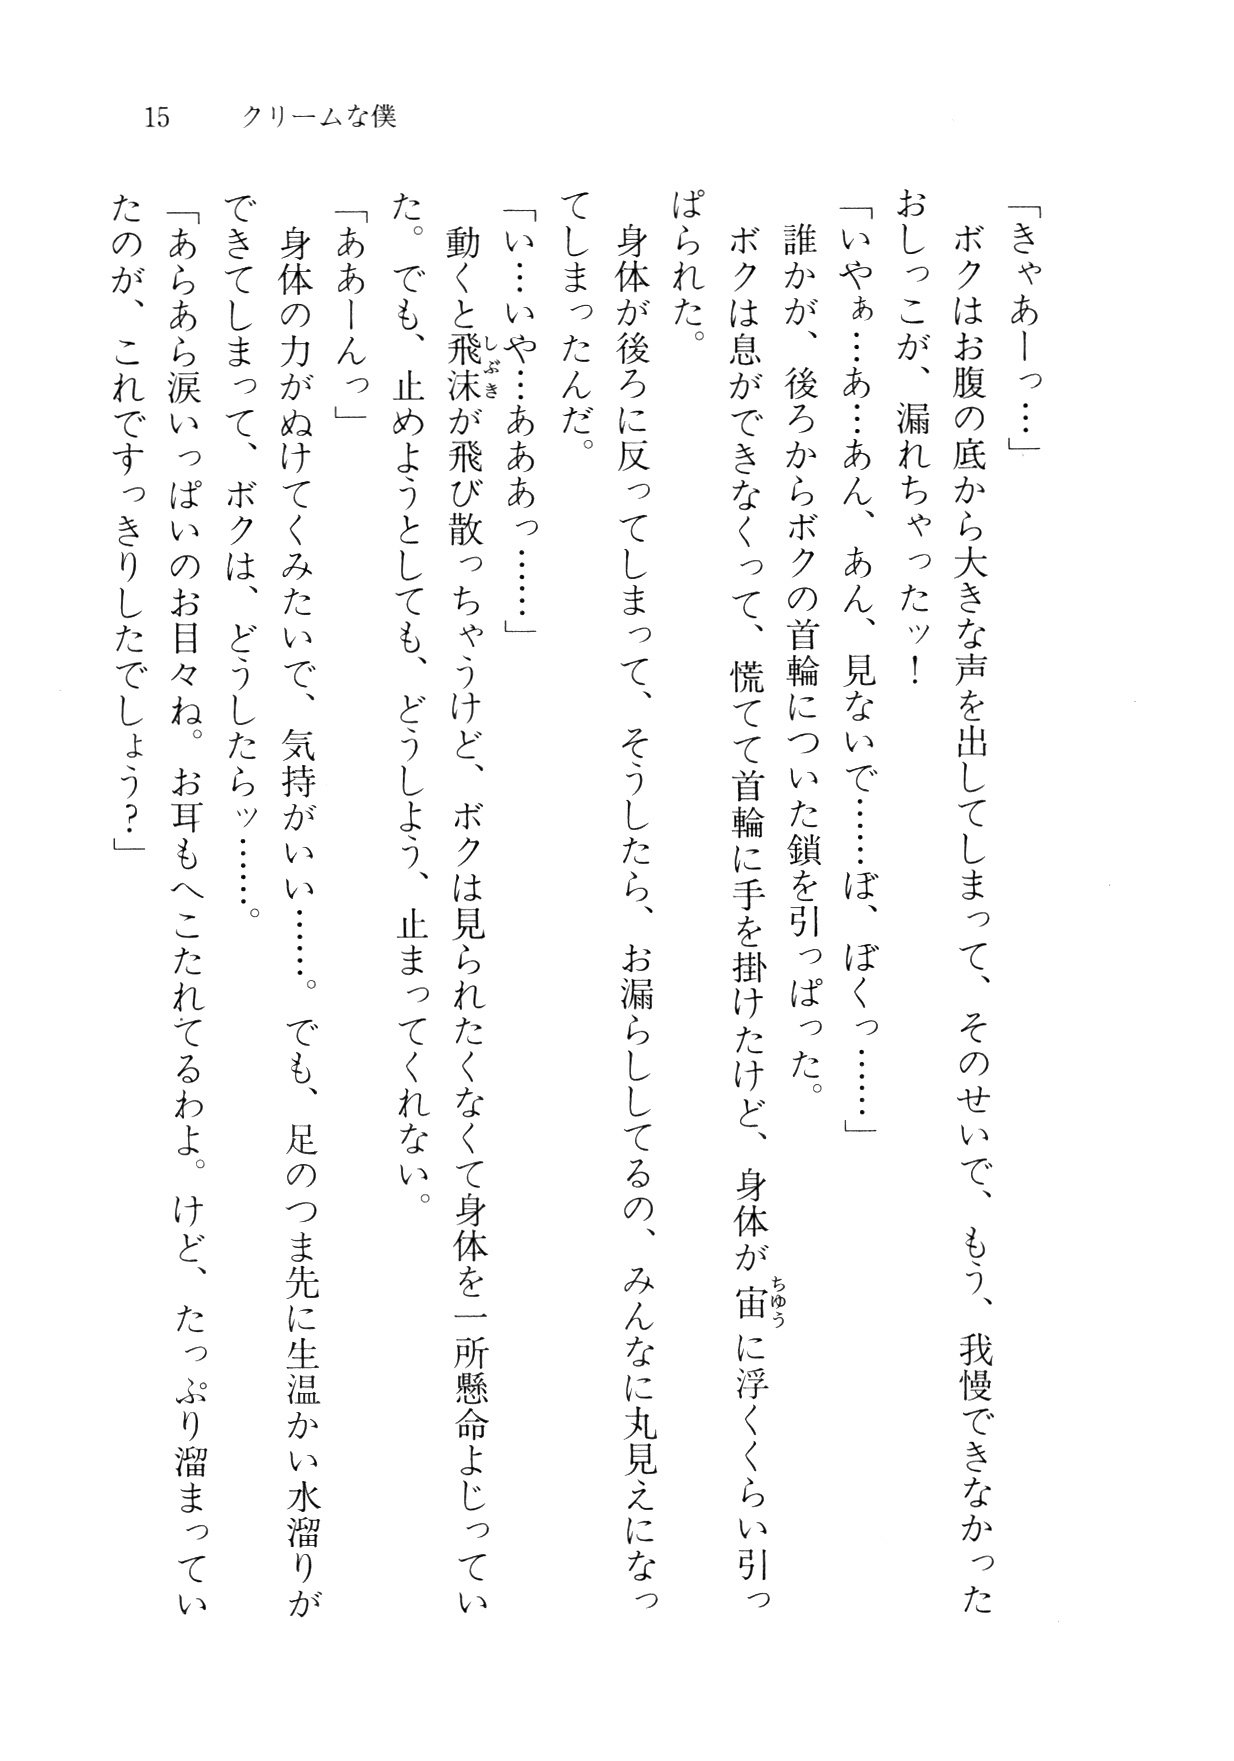 15 クリームな僕
「きゃあーっ…」
ボクはお腹の底から大きな声を出してしまって、そのせいで、もう、我慢できなかった
おしっこが、漏れちゃったッ！
「いやぁ…あ…あん、あん、見ないで……ぼ、ぼくっ……」
誰かが、後ろからボクの首輪についた鎖を引っぱった。
ボクは息ができなくって、慌てて首輪に手を掛けたけど、身体が宙に浮くくらい引っ
ちゅう
ぱられた。
身体が後ろに反ってしまって、そうしたら、お漏らししてるの、みんなに丸見えになっ
てしまったんだ。
「い…いや…あああっ……」
動くと飛沫が飛び散っちゃうけど、ボクは見られたくなくて身体を一所懸命よじってい
しぶき
た。でも、止めようとしても、どうしよう、止まってくれない。
「ああーんっ」
身体の力がぬけてくみたいで、気持がいい……。でも、足のつま先に生温かい水溜りが
できてしまって、ボクは、どうしたらッ……。
「あらあら涙いっぱいのお目々ね。お耳もへこたれてるわよ。けど、たっぷり溜まってい
たのが、これですっきりしたでしょう？」